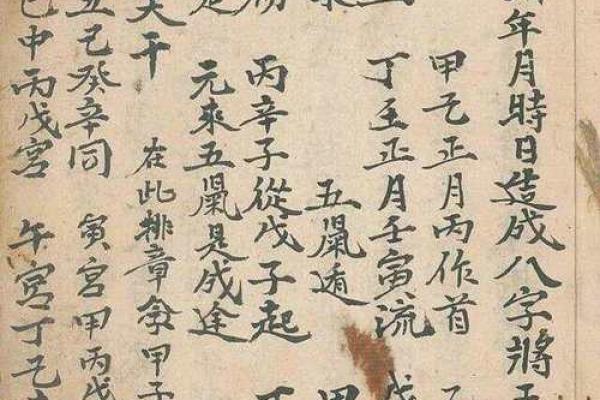 年月時日造成八字將
甲乙正月丙作首
丁壬正月壬寅流
五鼠遁
丙辛子從戊子起
元來五鼠是成途
天干
在此排章 甲子
五己癸辛同 寅宮甲丙戊
巳中丙戊宮 午宮丁己